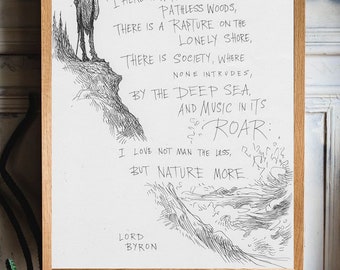 PATHLESS WOODS,
THERE IS A RAPTURE ON THE
LONELY SHORE,
THERE IS SOCIETY, WHERE
NONE INTRUDES,
BY THE DEEP SEA,
AND MUSIC IN ITS
ROAR:
I LOVE NOT MAN THE LESS,
BUT NATURE MORE
LORD
BYRON